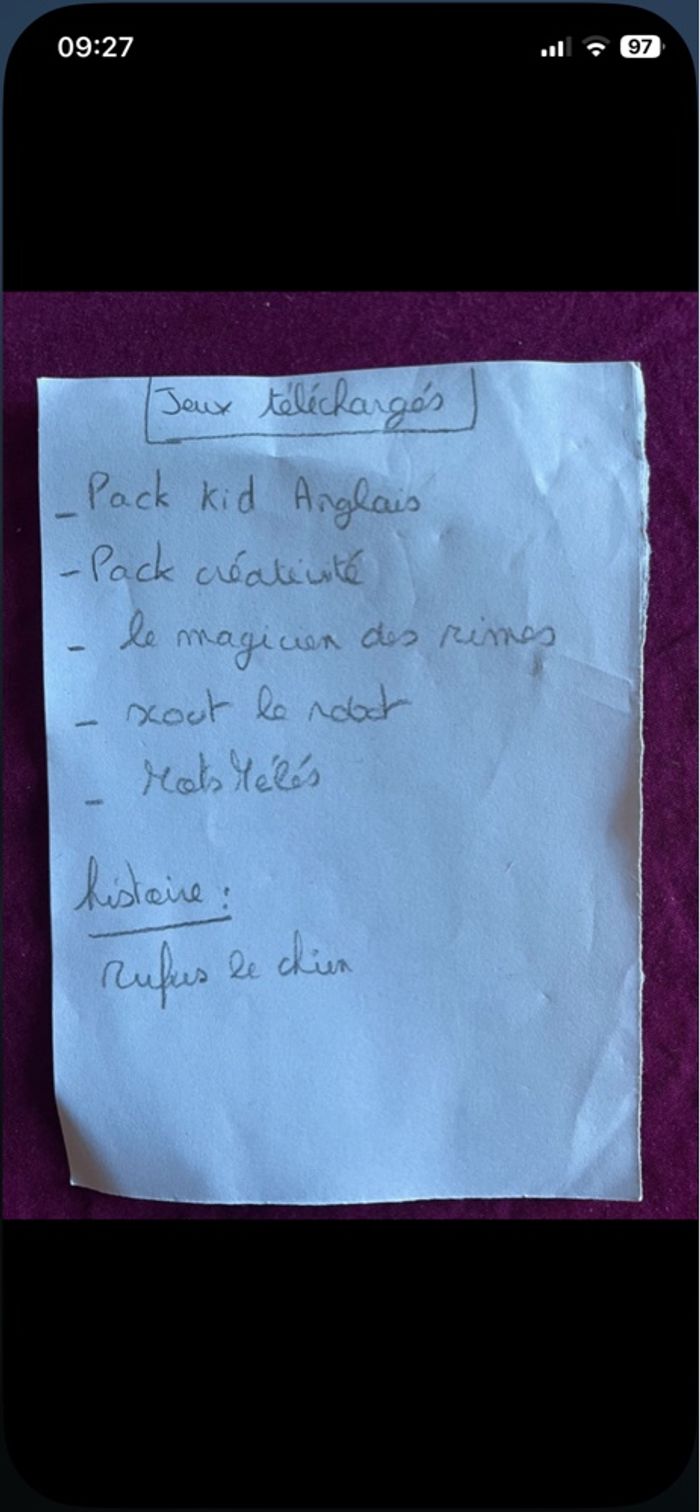 09:27
97
Jeux téléchargés
- Pack kid Anglais
- Pack créativité
- le magicien des rimes
- scout le robot
- Mots Mélés
histoire :
Rufus le chien